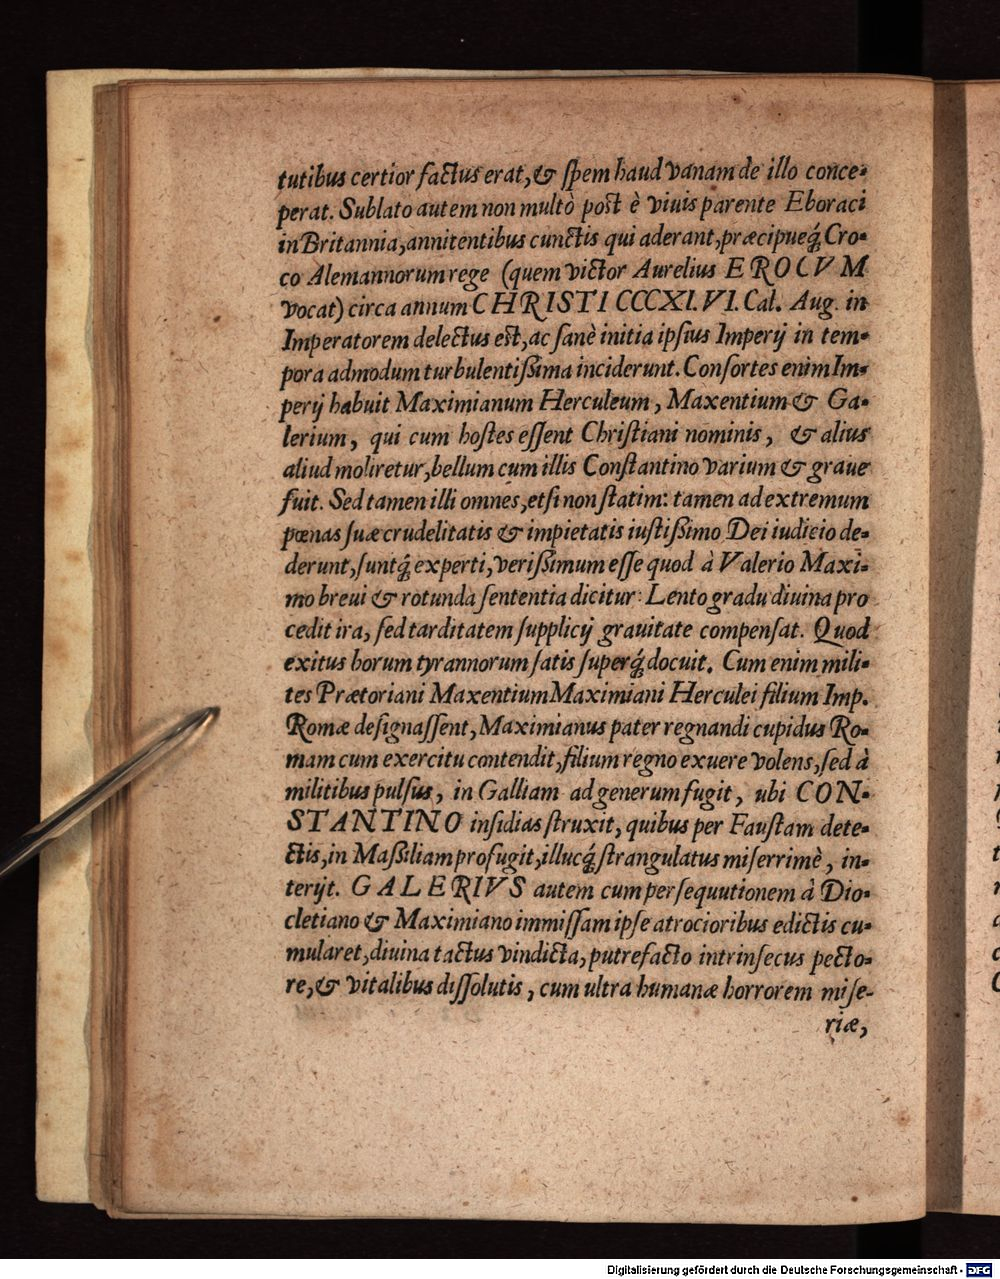 tutibus certior factus erat, & ſpem haud vanam de illo conce-
perat. Sublato autem non multò poſt è viuis parente Eboraci
in Britannia, annitentibus cunctis qui aderant, præcipueq́; Cro-
co Alemannorum rege (quem victor Aurelius EROCVM
vocat) circa annum CHRISTI CCCXI. VI. Cal. Aug. in
Imperatorem delectus eſt, ac ſanè initia ipſius Imperij in tem-
pora admodum turbulentiſsima inciderunt. Conſortes enim Im-
perij habuit Maximianum Herculeum, Maxentium & Ga-
lerium, qui cum hoſtes eſſent Chriſtiani nominis, & alius
aliud moliretur, bellum cum illis Conſtantino varium & graue
fuit. Sed tamen illi omnes, etſi non ſtatim: tamen ad extremum
pœnas ſuæ crudelitatis & impietatis iuſtiſsimo Dei iudicio de-
derunt, ſuntq́; experti, veriſsimum eſſe quod à Valerio Maxi-
mo breui & rotunda ſententia dicitur: Lento gradu diuina pro
cedit ira, ſed tarditatem ſupplicij grauitate compenſat. Quod
exitus horum tyrannorum ſatis ſuperq́; docuit. Cum enim mili-
tes Prætoriani Maxentium Maximiani Herculei filium Imp.
Romæ deſignaſſent, Maximianus pater regnandi cupidus Ro-
mam cum exercitu contendit, filium regno exuere volens, ſed à
militibus pulſus, in Galliam ad generum fugit, ubi CON-
STANTINO inſidias ſtruxit, quibus per Fauſtam dete-
ctis, in Maſsiliam profugit, illucq́; ſtrangulatus miſerrimè, in-
terijt. GALERIVS autem cum perſequutionem à Dio-
cletiano & Maximiano immiſſam ipſe atrocioribus edictis cu-
mularet, diuina tactus vindicta, putrefacto intrinſecus pecto-
re, & vitalibus diſſolutis, cum ultra humanæ horrorem miſe-
riæ,
Digitalisierung gefördert durch die Deutsche Forschungsgemeinschaft - DFG